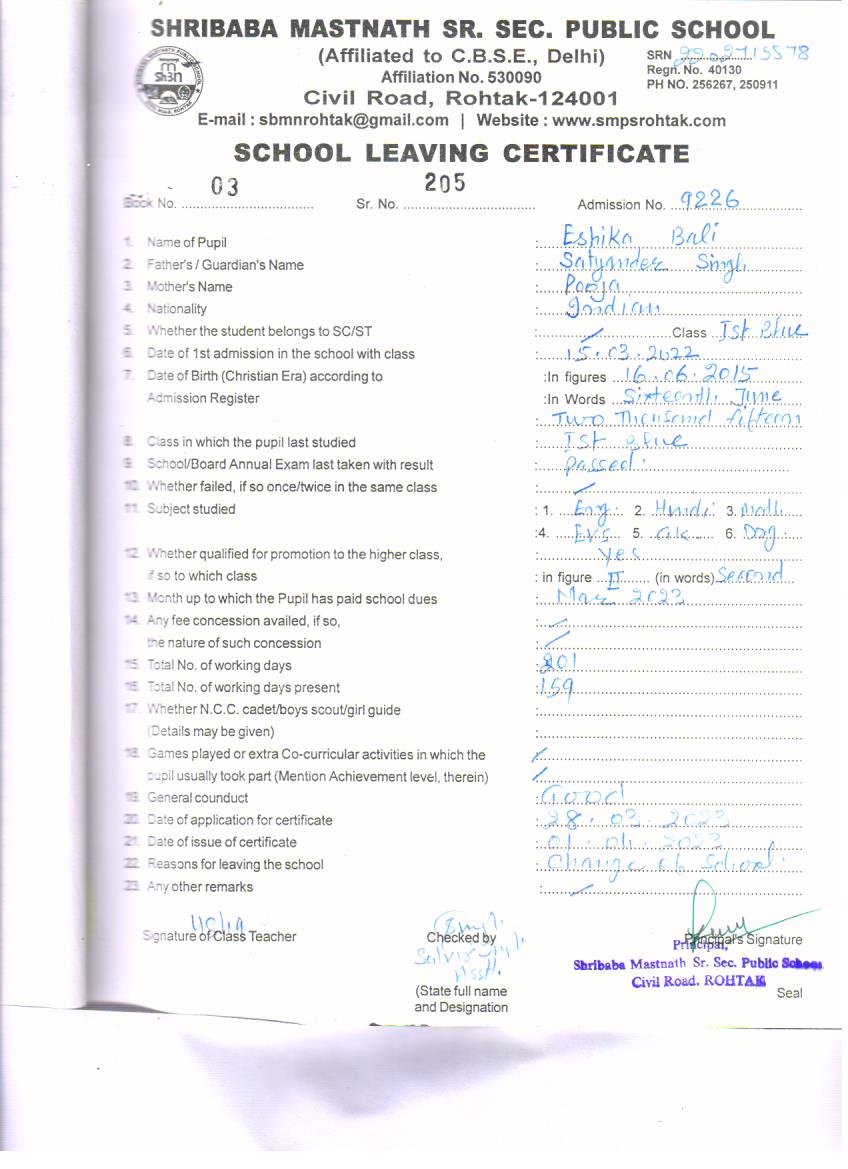 SHRIBABA MASTNATH SR. SEC. PUBLIC SCHOOL
(Affiliated to C.B.S.E., Delhi)
SRN
Affiliation No. 530090
Regn. No. 40130
PH NO. 256267, 250911
Civil Road, Rohtak-124001
E-mail : sbmnrohtak@gmail.com | Website : www.smpsrohtak.com
SCHOOL LEAVING CERTIFICATE
Book No. 03 Sr. No. 205 Admission No. 9226
1. Name of Pupil : Eshika Bali
2. Father's / Guardian's Name : Satyander Singh
3. Mother's Name : Pooja
4. Nationality : Indian
5. Whether the student belongs to SC/ST : Class Ist Blue
6. Date of 1st admission in the school with class : 15.03.2022
7. Date of Birth (Christian Era) according to :In figures 16.06.2015
Admission Register :In Words Sixteenth June
: Two Thousand fifteen
8. Class in which the pupil last studied : Ist Blue
9. School/Board Annual Exam last taken with result : passed.
10. Whether failed, if so once/twice in the same class :
11. Subject studied : 1. Eng. 2. Hindi 3. Math
:4. Evs 5. G.k 6. Dog.
12. Whether qualified for promotion to the higher class, : Yes
if so to which class : in figure II (in words) Second
13. Month up to which the Pupil has paid school dues : Mar 2023
14. Any fee concession availed, if so, :
the nature of such concession :
15. Total No. of working days : 201
16. Total No. of working days present : 159
17. Whether N.C.C. cadet/boys scout/girl guide :
(Details may be given) :
18. Games played or extra Co-curricular activities in which the :
pupil usually took part (Mention Achievement level, therein) :
19. General counduct : Good
20. Date of application for certificate : 28.03.2023
21. Date of issue of certificate : 01.04.2023
22. Reasons for leaving the school : Change of School.
23. Any other remarks :
Signature of Class Teacher Checked by Principal's Signature
Principal,
Shribaba Mastnath Sr. Sec. Public School
Civil Road, ROHTAK
Asstt.
(State full name Seal
and Designation